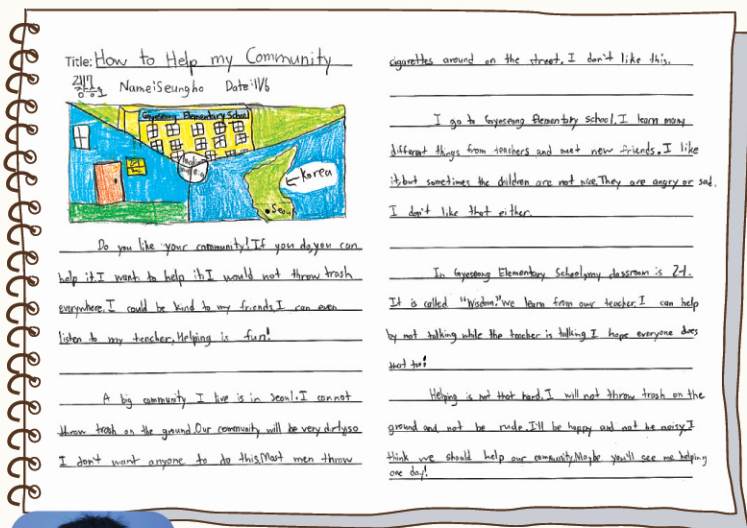 Title: How to Help my Community
Name: Seungho Date: 11/6
Gyeseong Elementary School
Korea
Seoul
Do you like your community? If you do, you can
help it. I want to help it. I would not throw trash
everywhere. I could be kind to my friends. I can even
listen to my teacher. Helping is fun!
A big community I live is in Seoul. I cannot
throw trash on the ground. Our community will be very dirty, so
I don't want anyone to do this. Most men throw
cigarettes around on the street. I don't like this.
I go to Gyeseong Elementary School. I learn many
different things from teachers and meet new friends. I like
it, but sometimes the children are not nice. They are angry or sad.
I don't like that either.
In Gyeseong Elementary School, my classroom is 2-1.
It is called "Wisdom." We learn from our teacher. I can help
by not talking while the teacher is talking. I hope everyone does
that too!
Helping is not that hard. I will not throw trash on the
ground and not be rude. I'll be happy and not be noisy. I
think we should help our community. Maybe you'll see me helping
one day!